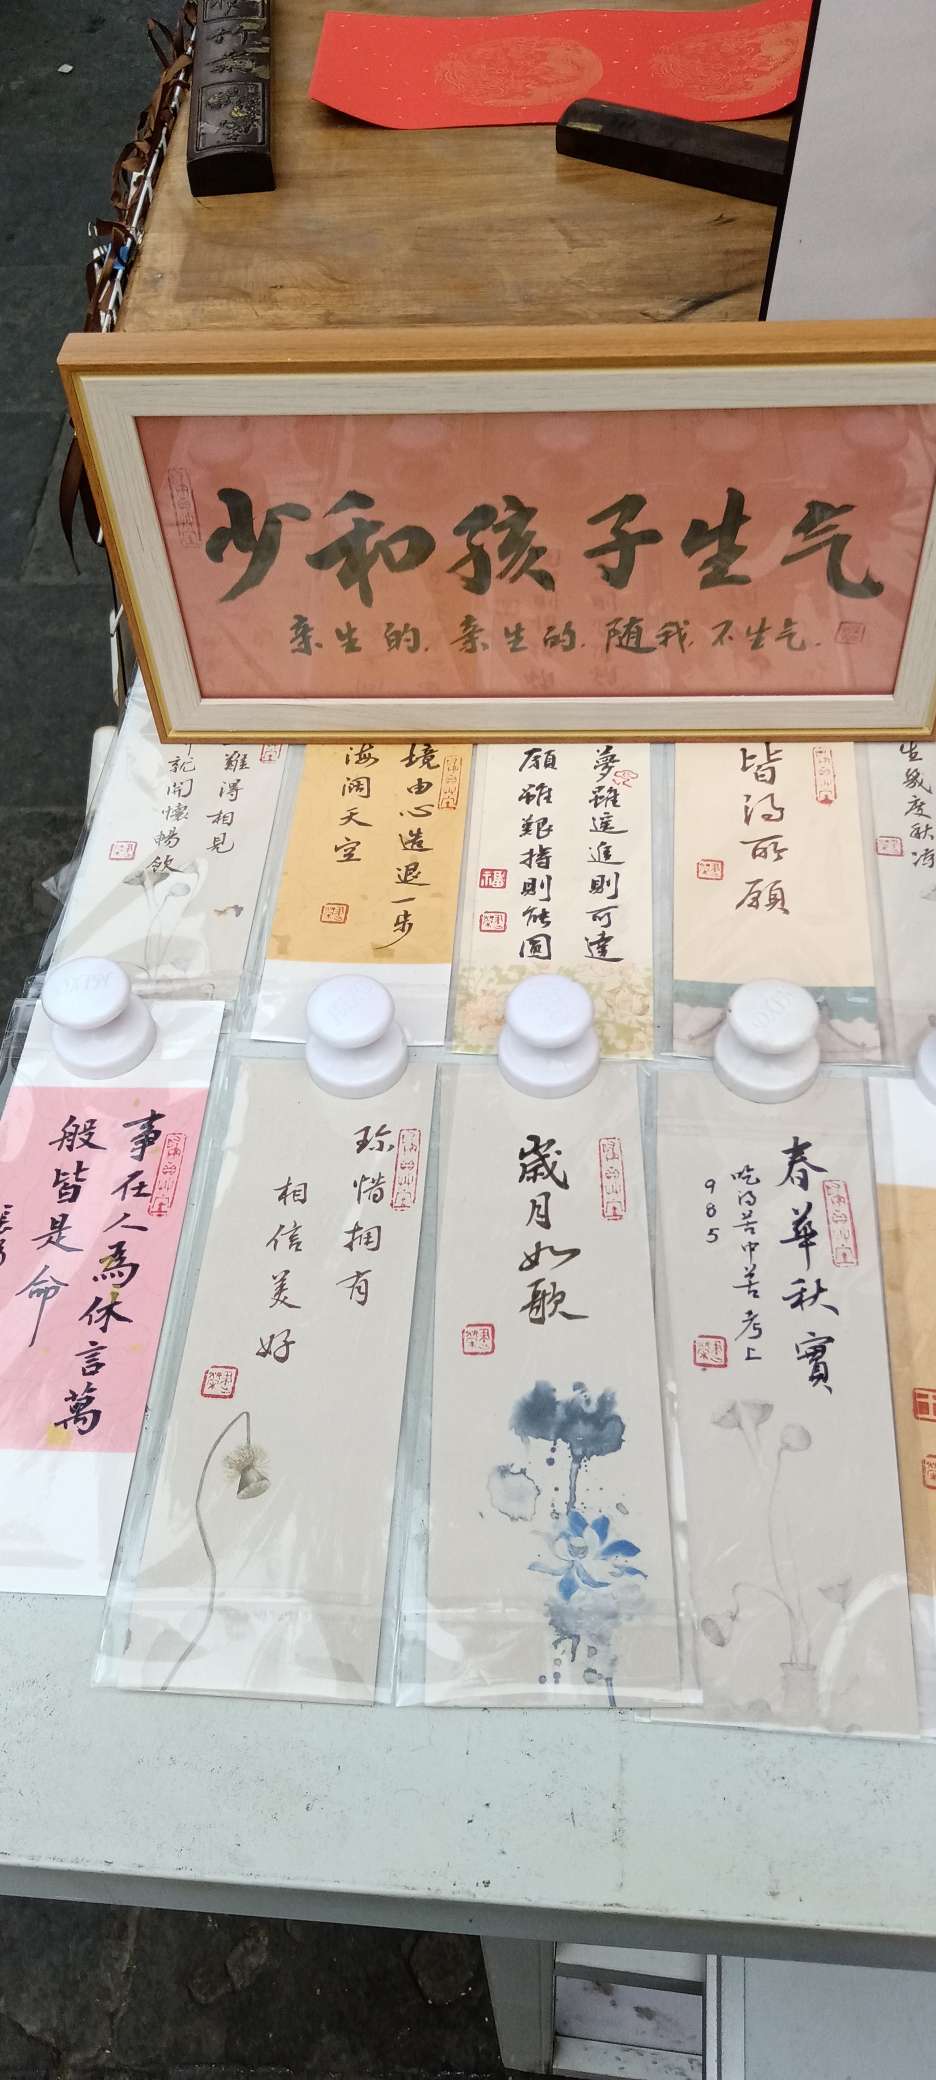 少和孩子生气
亲生的.亲生的.随我.不生气.
難得相見
就開懷暢飲
境由心造退一步
海阔天空
夢雖遥追則可達
願雖艱持則能圓
皆得所願
事在人為休言萬
般皆是命
珍惜拥有
相信美好
歲月如歌
春華秋實
吃得苦中苦考上
985